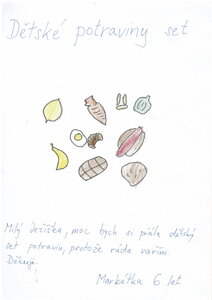 Dětské potraviny set
Milý Ježíšku, moc bych si přála dětský
set potravin, protože ráda vařím.
Děkuji.
Markétka 6 let